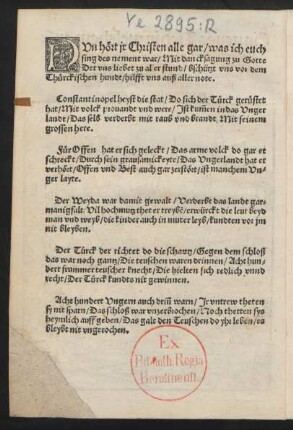 Ye 2895:R
NUn hört jr Christen alle gar/was ich euch
sing des nement war/Mit dancksagung zu Gotte
Der vns liebet zu aller stund/bschützt vns vor dem
Thürckischen hunde/hilfft vns auß aller note.
Constantinopel heyst die stat/Do sich der Türck gerüstet
hat/Mit volck prouandt vnd were/Ist kumen in das Vnger
lande/Das selb verderbt mit raub vnd brandt.Mit seinem
grossen here.
Für Offen hat er sich geleckt/Das arme volck do gar er
schreckt/Durch sein grausamickeyte/Das Vngerlandt hat er
verhört/Offen vnd Best auch gar zerstört/ist manchem Vn-
ger layte.
Der Weyda war damit gewalt/Verderbt das lande gar
manigfalt.Vil hochmuyt thet er treybē/erwürckt die leut beyd
man vnd weyb/die kinder auch in muter leyb/kundten vor jm
nit bleyben.
Der Türck der richtet do die schantz/Gegen dem schloß
das war noch gantz/Die teuschen waren drinnen/Acht hun-
dert frummer teuscher knecht/Die hielten sich redlich vnnd
recht/Der Türck kundts nit gewinnen.
Acht hundert Vngern auch drin warn/Jr vntrew theten
sy nit sparn/Das schloß war vnzerbrochen/Noch thetten sys
heymlich auff geben/Das galt den Teuschen do yhr leben/es
bleybt nit vngerochen.
Ex
Biblioth. Regia
Berolinensi.